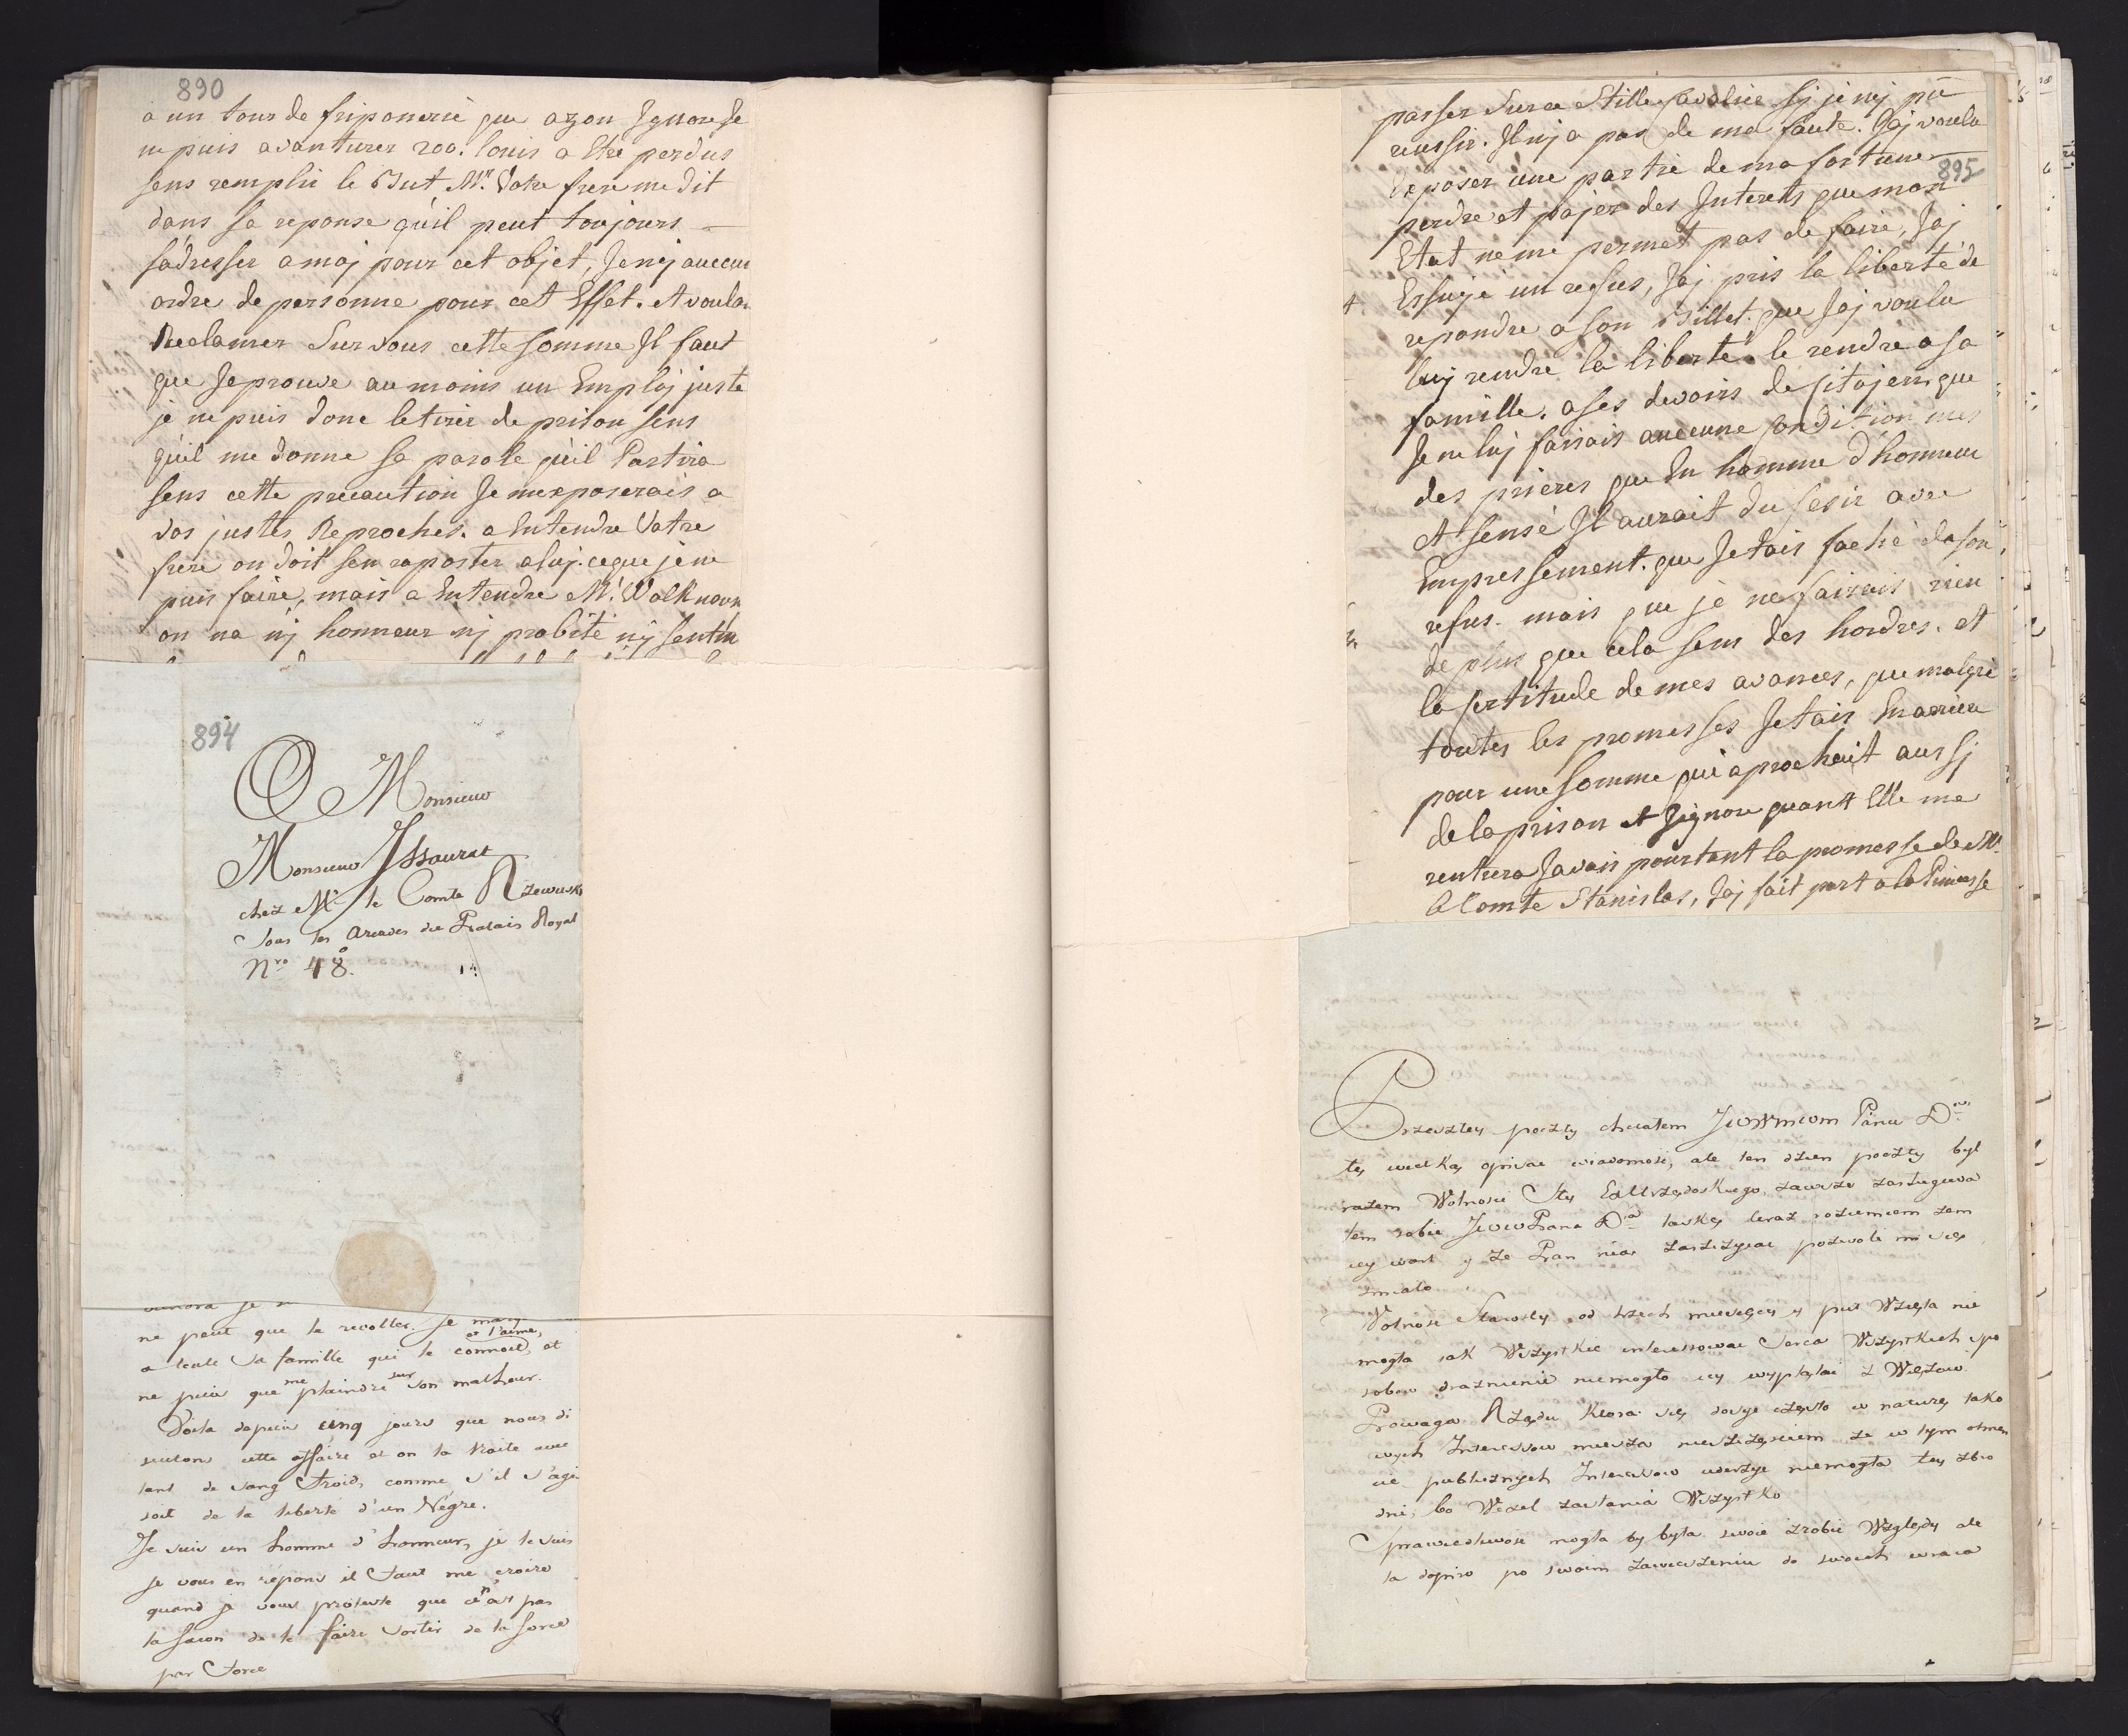 890
a un tour de friponerie que ayon Ignore Je
ne puis avanturer 200. louis a Etre perdus
sens remplir le But Mr. Votre frere me dit
dans sa reponse qu'il peut toujours
s'adresser a moj pour cet objet, Je nej aucun
ordre de personne pour cet Effet. et voulan
Reclamer Sur vous cette somme Il faut
que Je prouve au moins un Emploj juste
je ne puis donc le tirer de prison sens
qu'il me donne sa parole qu'il Partira
sens cette precaution Je mexposerais a
vos justes Reproches. a Entendre Votre
frere on doit sen raporter a luj. ce que je ne
puis faire, mais a Entendre Mr. Walknown
on na nj honneur nj probité nÿ sentim
894
A Monsieur
Monsieur Issaurat
chez Mr le Comte Rzewuski
Sous les Arcades du Palais Royal
Nro 48.
ne peut que le revolter. Je
a toute sa famille qui le connoit, et l'aime, et
ne puis que me plaindre sur son malheur.
Voila depuis cinq jours que nous di
scutons cette affaire et on la traite avec
tant de sang froid, comme s'il s'agi
soit de la liberté d'un Négre.
Je suis un homme d'honneur, je le suis
Je vous en répons il faut me croire
quand je vous proteste que ce n'est pas
la facon de le faire sortir de la force
par force
passer Sur ce Stille cavalier sj je nej pû
reussir. Il nj a pas de ma faute. Jaj voulu
deposer une partie de ma fortune
895
perdre et pajer des Interets que mon
Etat ne me permet pas de faire, Jaj
Essujé un refus, Jaj pris la liberté de
repondre a son Billet. que Jaj voulu
luj rendre la liberté. le rendre a sa
famille. a ses devoirs de sitojen que
Je ne luj faisais aucune condition mes
des prieres que En homme d'honneur
et sensé Il aurait du sesir avec
Empressement. que Jetais faché de son
refus. mais que je ne fairais rien
de plus que cela sens des hordres. et
la sertitude de mes avances, que malgré
toutes les promesses Jetais En arriere
pour une somme qui aprochait aussj
de la prison et Jignore quant Elle me
rentrera Javais pourtant la promesse de Mr.
le Comte Stanislas, Jaj fait part a la Princesse
Przeszłey poczty chciałem JWWMWM Panu D
tę wielką opisac wiadomosc, ale ten dzien poczty był
razem Wolnosci
tem sobie JWW Pana Da łaskę teraz rozumiem zem
iey wart y ze Pan
smiało
Wolnosc Starosty od trzech miesięcy y puł Wzięta nie
mogła iak Wszystkie interessowac serca Wszystkich spo
sobow draznienie niemogło iey wyplątac z Więzow
Powaga Rządu Ktora się
wych Interessow miesza nieszczęsciem ze w tym
ie publicznych Interessow niemogła tey zbro
dni, bo Wexel zasłania Wszystko
Sprawiedliwosc mogła by była swoie zrobic Względy ale
ta dopiro po swoim zawieszeniu do swoich wraca